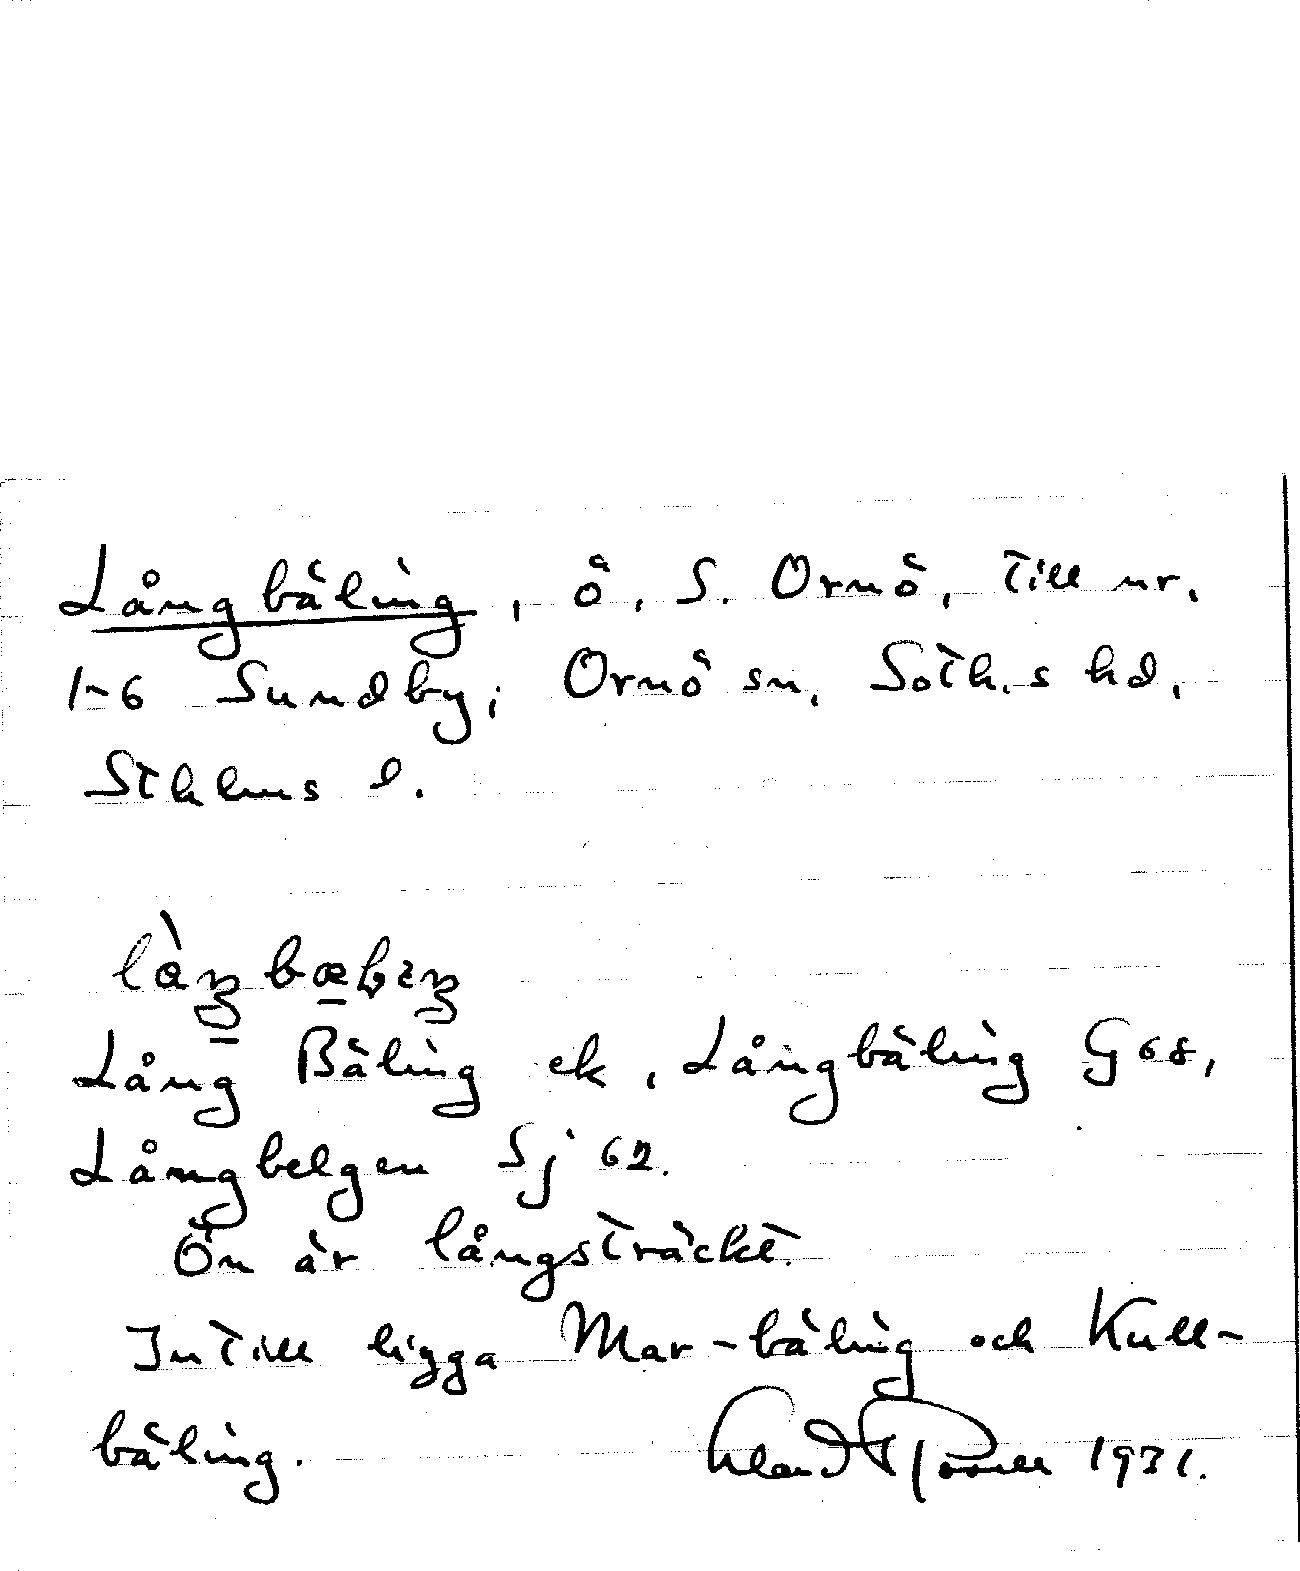 Långbäling, ö, S. Ornö, till nr.
1-6 Sundby; Ornö sn, Soth.s hd,
Sthlms l.
Lång Bäling ek, Långbäling G 68,
Långbelgen Sj 62.
Ön är långsträckt.
Intill ligga Mar-bäling och Kull-
bäling. 1931.